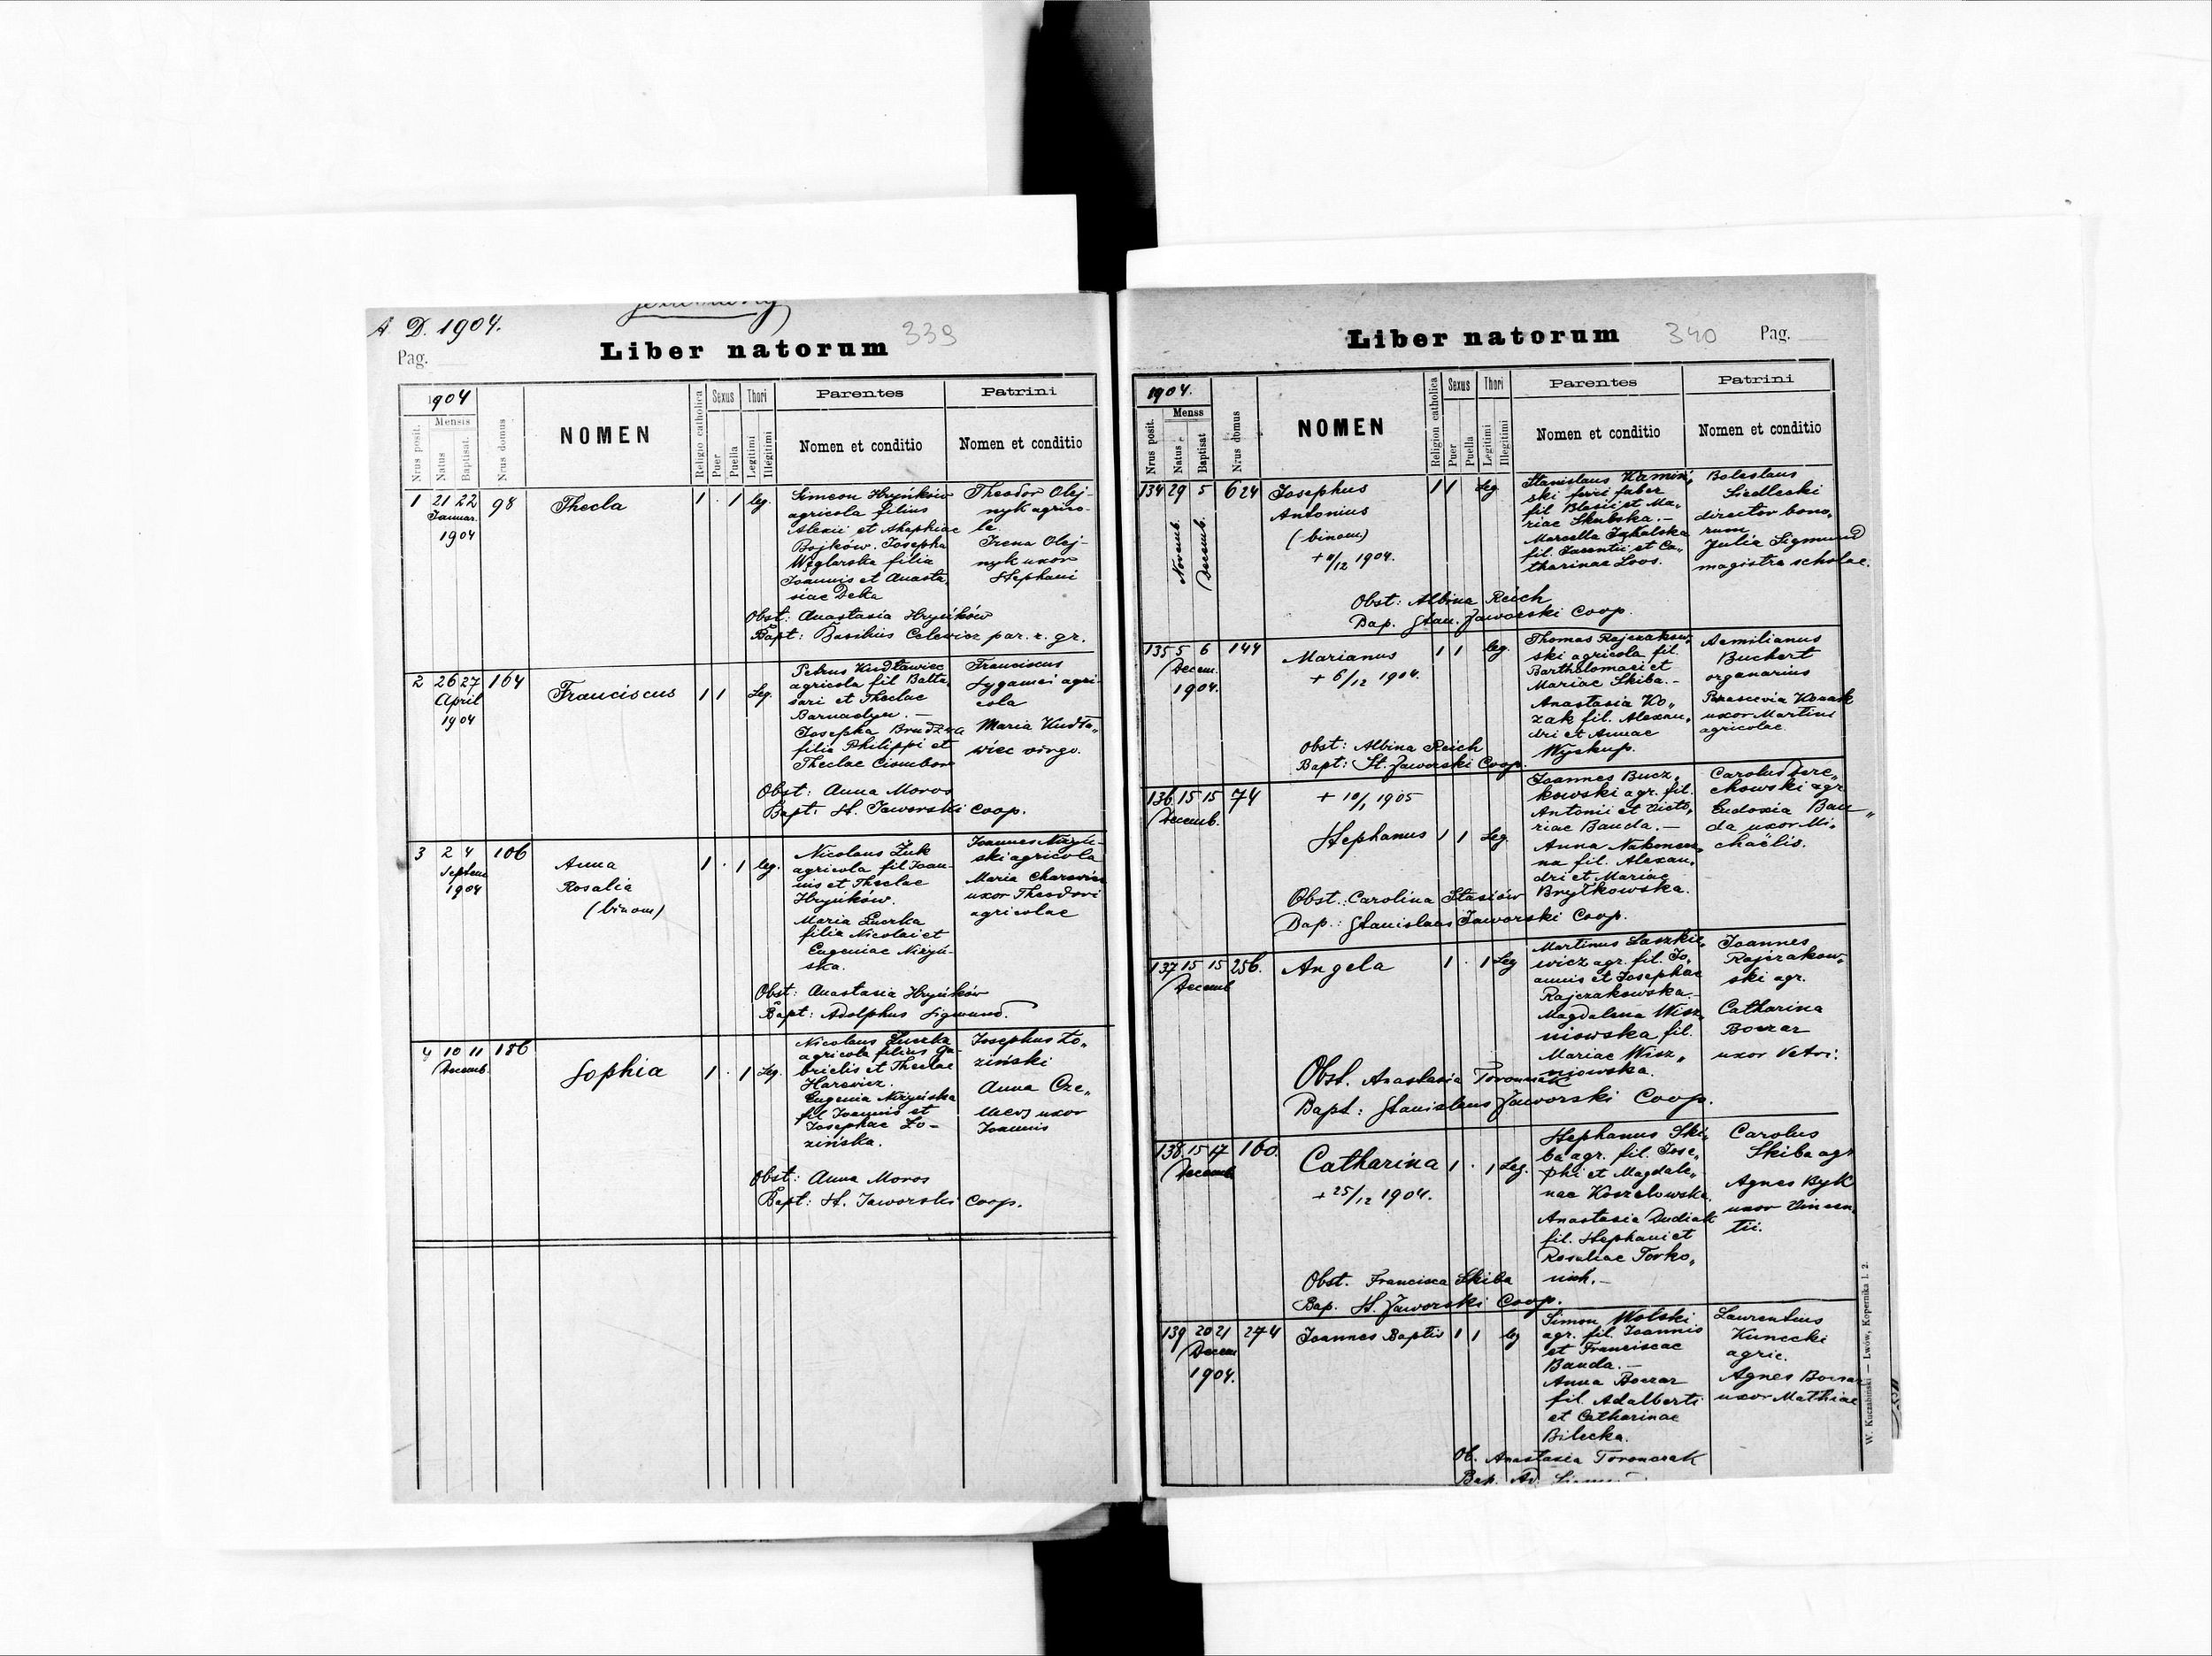 A. D. 1904.
339
Pag.
Liber natorum
1904
Mensis
Nrus posit.
Natus
Baptisat.
Nrus domus
NOMEN
Religio catholica
Sexus
Puer
Puella
Thori
Legitimi
Illegitimi
Parentes
Nomen et conditio
Patrini
Nomen et conditio
1 21 22 98
Januar.
1904
Thecla
1 . 1 leg.
Simeon Hryńków
agricola filius
Alexii et Ahaphiae
Bojków. Josepha
Węglarska filia
Joannis et Anasta
siae Deka
Theodor Olej-
nyk agrico-
la
Irena Olej-
nyk uxor
Stephani
Obst: Anastasia Hryńków
Bapt: Basilius Celewicz par. r. gr.
2 26 27 164
April
1904
Franciscus
1 1 Leg.
Petrus Kudławiec
agricola fil Balta
sari et Theclae
Josepha
filia Philippi et
Theclae
Franciscus
agri-
cola
Maria Kudła„
wiec virgo.
Obst: Anna Moros
Bapt: St. Jaworski Coop.
3 2 4 106
Septem
1904
Anna
Rosalia
(binom)
1 . 1 leg.
Nicolaus Żuk
agricola fil Joan-
nis et Theclae
Hryńków.
Maria
filia Nicolai et
Eugeniae Niżyń-
ska.
Joannes Niżyń-
ski agricola
Maria
uxor Theodori
agricolae
Obst: Anastasia Hryńków
Bapt: Adolphus Sigmund.
4 10 11 186
Decemb.
Sophia
1 . 1 Leg.
Nicolaus
agricola filius Ga-
brielis et Theclae
Harewicz.
Eugenia Niżyńska
fil Joannis et
Josephae Ło-
zińska.
Josephus Ło„
ziński
Anna
uxor
Joannis
Obst: Anna Moros
Bapt: St. Jaworski Coop.
Liber natorum
340
Pag.
1904.
Menss
Nrus posit.
Natus
Baptisat
Nrus domus
NOMEN
Religion catholica
Sexus
Puer
Puella
Thori
Legitimi
Illegitimi
Parentes
Nomen et conditio
Patrini
Nomen et conditio
134 29 5 624
Novemb.
Decemb.
Josephus
Antonius
(binom)
/12 1904.
1 1 Leg
Stanislaus Kamiń„
ski ferri faber
fil Blasii et Ma„
riae Skubska.-
Marcella
fil. et Ca„
tharinae Loos.
Boleslaus
Siedlecki
director bono„
rum
Julia Sigmund
magistra scholae.
Obst: Albina Reich
Bap. Stan. Jaworski Coop.
135 5 6 144
Decem.
1904.
Marianus
+ 6/12 1904.
1 1 leg.
Thomas Rajczakow„
ski agricola fil.
Bartholomaei et
Mariae Skiba.-
Anastasia Ko„
zak fil. Alexan„
dri et Annae
Wyskup.
Aemilianus
Buchert
organarius
Parascevia Kozak
uxor Martini
agricolae.
Obst: Albina Reich
Bapt: St. Jaworski Coop.
136 15 15 74
Decemb.
+ 10/1 1905
Stephanus
1 1 Leg.
Joannes Bucz„
kowski agr. fil.
Antonii et Victo„
riae Bauda.-
Anna
na fil. Alexan„
dri et Mariae
Brytkowska.
Carolus Tere„
chowski agr
Eudoxia Bau„
da uxor Mi„
chaëlis.
Obst.: Carolina Stasiów
Bap.: Stanislaus Jaworski Coop.
137 15 15 256.
Decemb
Angela
1 . 1 Leg
Martinus Laszkie„
wicz agr. fil. Jo„
annis et Josephae
Rajczakowska.-
Magdalena Wisz„
niowska fil.
Mariae Wisz„
niowska.
Joannes
Rajczakow„
ski agr.
Catharina
Boczar
uxor Petri.
Obst. Anastasia Toronczak
Bapt: Stanislaus Jaworski Coop.
138. 15 17 160.
Decemb
Catharina
+ 25/12 1904.
1 . 1 Leg.
Stephanus Ski„
ba agr. fil. Jose„
phi et Magdale„
nae Koszelowska.
Anastasia Dudiak
fil. Stephani et
Rosaliae
Carolus
Skiba agr
Agnes Byk
uxor Vincen„
tii.
Obst. Francisca Skiba
Bap. St. Jaworski Coop.
139 20 21 274
Decem
1904.
Joannes Baptis
1 1 leg
Simon Wolski
agr. fil. Joannis
et Franciscae
Bauda.-
Anna Boczar
fil. Adalberti
et Catharinae
Bilecka.
Laurentius
Kunecki
agric.
Agnes Boczar
uxor Mathiae
Ob. Anastasia Toronczak
Bap. Ad.
W. Kuczabiński — Lwów, Kopernika l. 2.